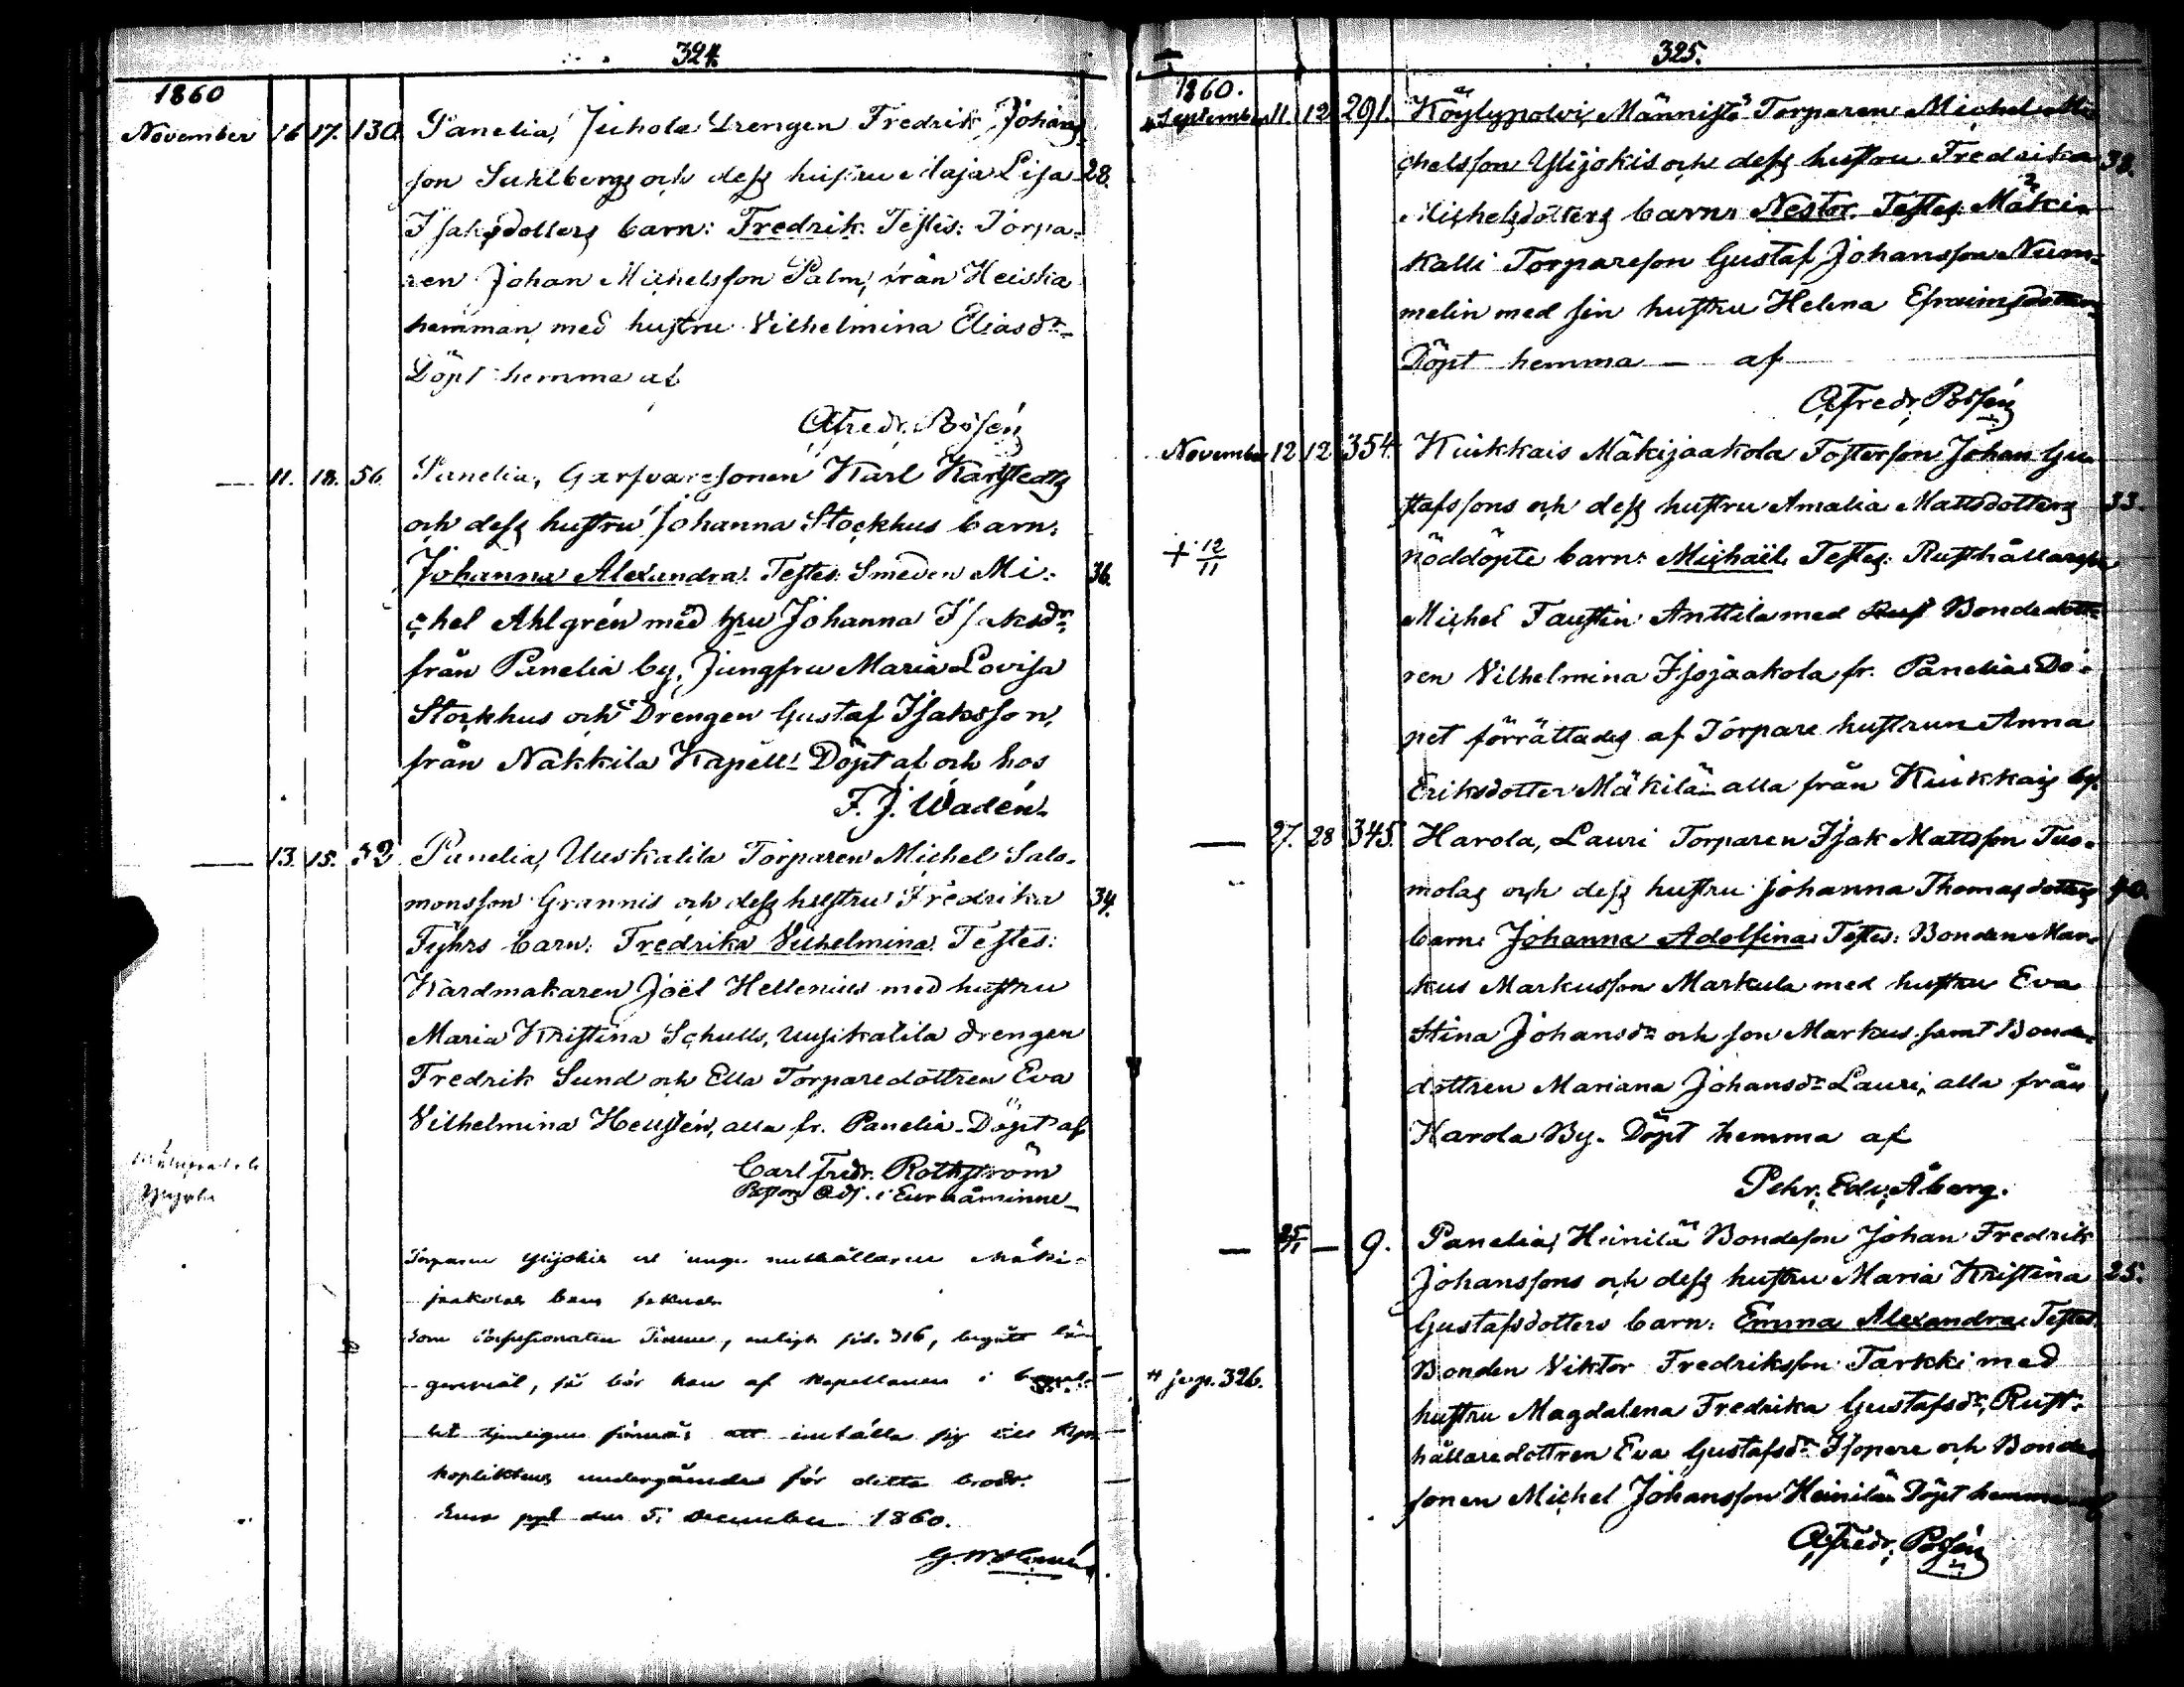 324.
1860
November 16 17. 130. Panelia, Juhola Drengen Fredrik Johans-
son Suhlbergs och dess hustru Maja Lisa 28.
Isaksdotters barn: Fredrik. Testis: Torpa-
ren Johan Michelsson Palm, från Heiska
hemman, med hustru Vilhelmina Eliasdr.
Döpt hemma af
A Fredr. Rosén
— 11. 18. 56. Panelia, Garfvaresonen Karl Karlstedts
och dess hustru Johanna Stockhus barn:
Johanna Alexandra. Testes: Smeden Mi- 36.
chel Ahlgrén med hru Johanna Isaksdr,
från Panelia by. Jungfru Maria Lovisa
Stockhus och Drengen Gustaf Isaksson,
från Nakkila Kapell. Döpt af och hos
F. J. Wadén.
— 13. 15. 32 Panelia, Uuskalila Torparen Michel Salo-
monsson Grannis och dess hustru Fredrika 34.
Fyhrs barn: Fredrika Vilhelmina. Testes:
Kardmakaren Joël Hellenius med hustru
Maria Kristina Schulls, Uusikalila drengen
Fredrik Sund och Ella Torparedottren Eva
Vilhelmina Hellstén, alla fr. Panelia. Döpt af
Carl Fredr. Rothström
Past. Adj. i Euraåminne
Torparen Ylijokis och unge rusthållaren Mäki-
jaakolas barn
som enligt sid. 316, begått
så bör han af Kapellanen i
att inställa sig till
undergående för detta brott.
Eura den 5 December 1860.
325.
1860.
September 11. 12 291. Köylypolvi, Männistö Torparen Michel Mi-
chelsson Ylijokis och dess hustru Fredrika 38.
Michelsdotters barn: Nestor. Testes: Mäki-
kalli Torpareson Gustaf Johansson Num-
melin med sin hustru Helena Efraimsdotter.
Döpt hemma — af
A Fredr. Rosén
November 12 12 354. Kiukkais Mäkijaakola Fosterson Johan Gu-
stafssons och dess hustru Amalia Mattsdotters 33.
+ 12/11 nöddöpte barn: Michaël. Testes: Rusthållareson
Michel Faustin Anttila med Bondedott-
ren Vilhelmina Isojaakola fr. Panelia. Do-
pet förrättades af Torpare hustrun Anna
Eriksdotter Mäkilä alla från Kiukkais by.
— 27. 28 345. Harola, Lauri Torparen Isak Mattsson Tuo-
molas och dess hustru Johanna Thomasdotters 40.
barn: Johanna Adolfina. Testes: Bonden Mar-
kus Markusson Markula med hustru Eva
Stina Johansdr och son Markus samt Bonde-
dottren Mariana Johansdr Lauri, alla från
Harola By. Döpt hemma af
Pehr Edv. Åberg.
— — 9. Panelia, Heinilä Bondeson Johan Fredrik
Johanssons och dess hustru Maria Kristina 25.
Gustafsdotters barn: Emma Alexandra. Testes:
# p. 326. Bonden Viktor Fredriksson Tarkki med
hustru Magdalena Fredrika Gustafsdr, Rust-
hållaredottren Eva Gustafsdr Isopere och Bonde-
sonen Michel Johansson Heinilä. Döpt hemma af
A Fredr. Rosén